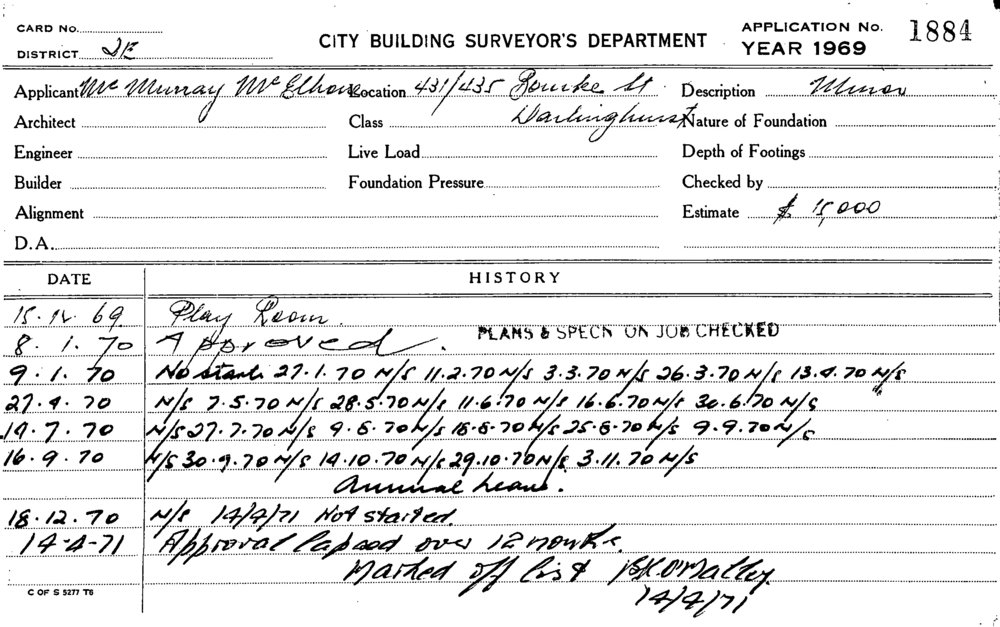 CARD No.
DISTRICT 2E
CITY BUILDING SURVEYOR'S DEPARTMENT
APPLICATION No. 1884
YEAR 1969
Applicant Mc Murray Mc Elhone Location 431/435 Bourke St Description Minor
Architect Class Darlinghurst Nature of Foundation
Engineer Live Load Depth of Footings
Builder Foundation Pressure Checked by
Alignment Estimate $ 15,000
D.A.
DATE HISTORY
15.12.69 Play Room.
8.1.70 Approved. PLANS & SPECN ON JOB CHECKED
9.1.70 No start. 27.1.70 N/S 11.2.70 N/S 3.3.70 N/S 26.3.70 N/S 13.4.70 N/S
27.4.70 N/S 7.5.70 N/S 28.5.70 N/S 11.6.70 N/S 16.6.70 N/S 30.6.70 N/S
14.7.70 N/S 27.7.70 N/S 9.8.70 N/S 18.8.70 N/S 25.8.70 N/S 9.9.70 N/S
16.9.70 N/S 30.9.70 N/S 14.10.70 N/S 29.10.70 N/S 3.11.70 N/S
Annual Leave.
18.12.70 N/S 14/4/71 Not started.
14-4-71 Approval lapsed over 12 months.
Marked off list B.K. O'Malley
14/4/71
C OF S 5277 T6